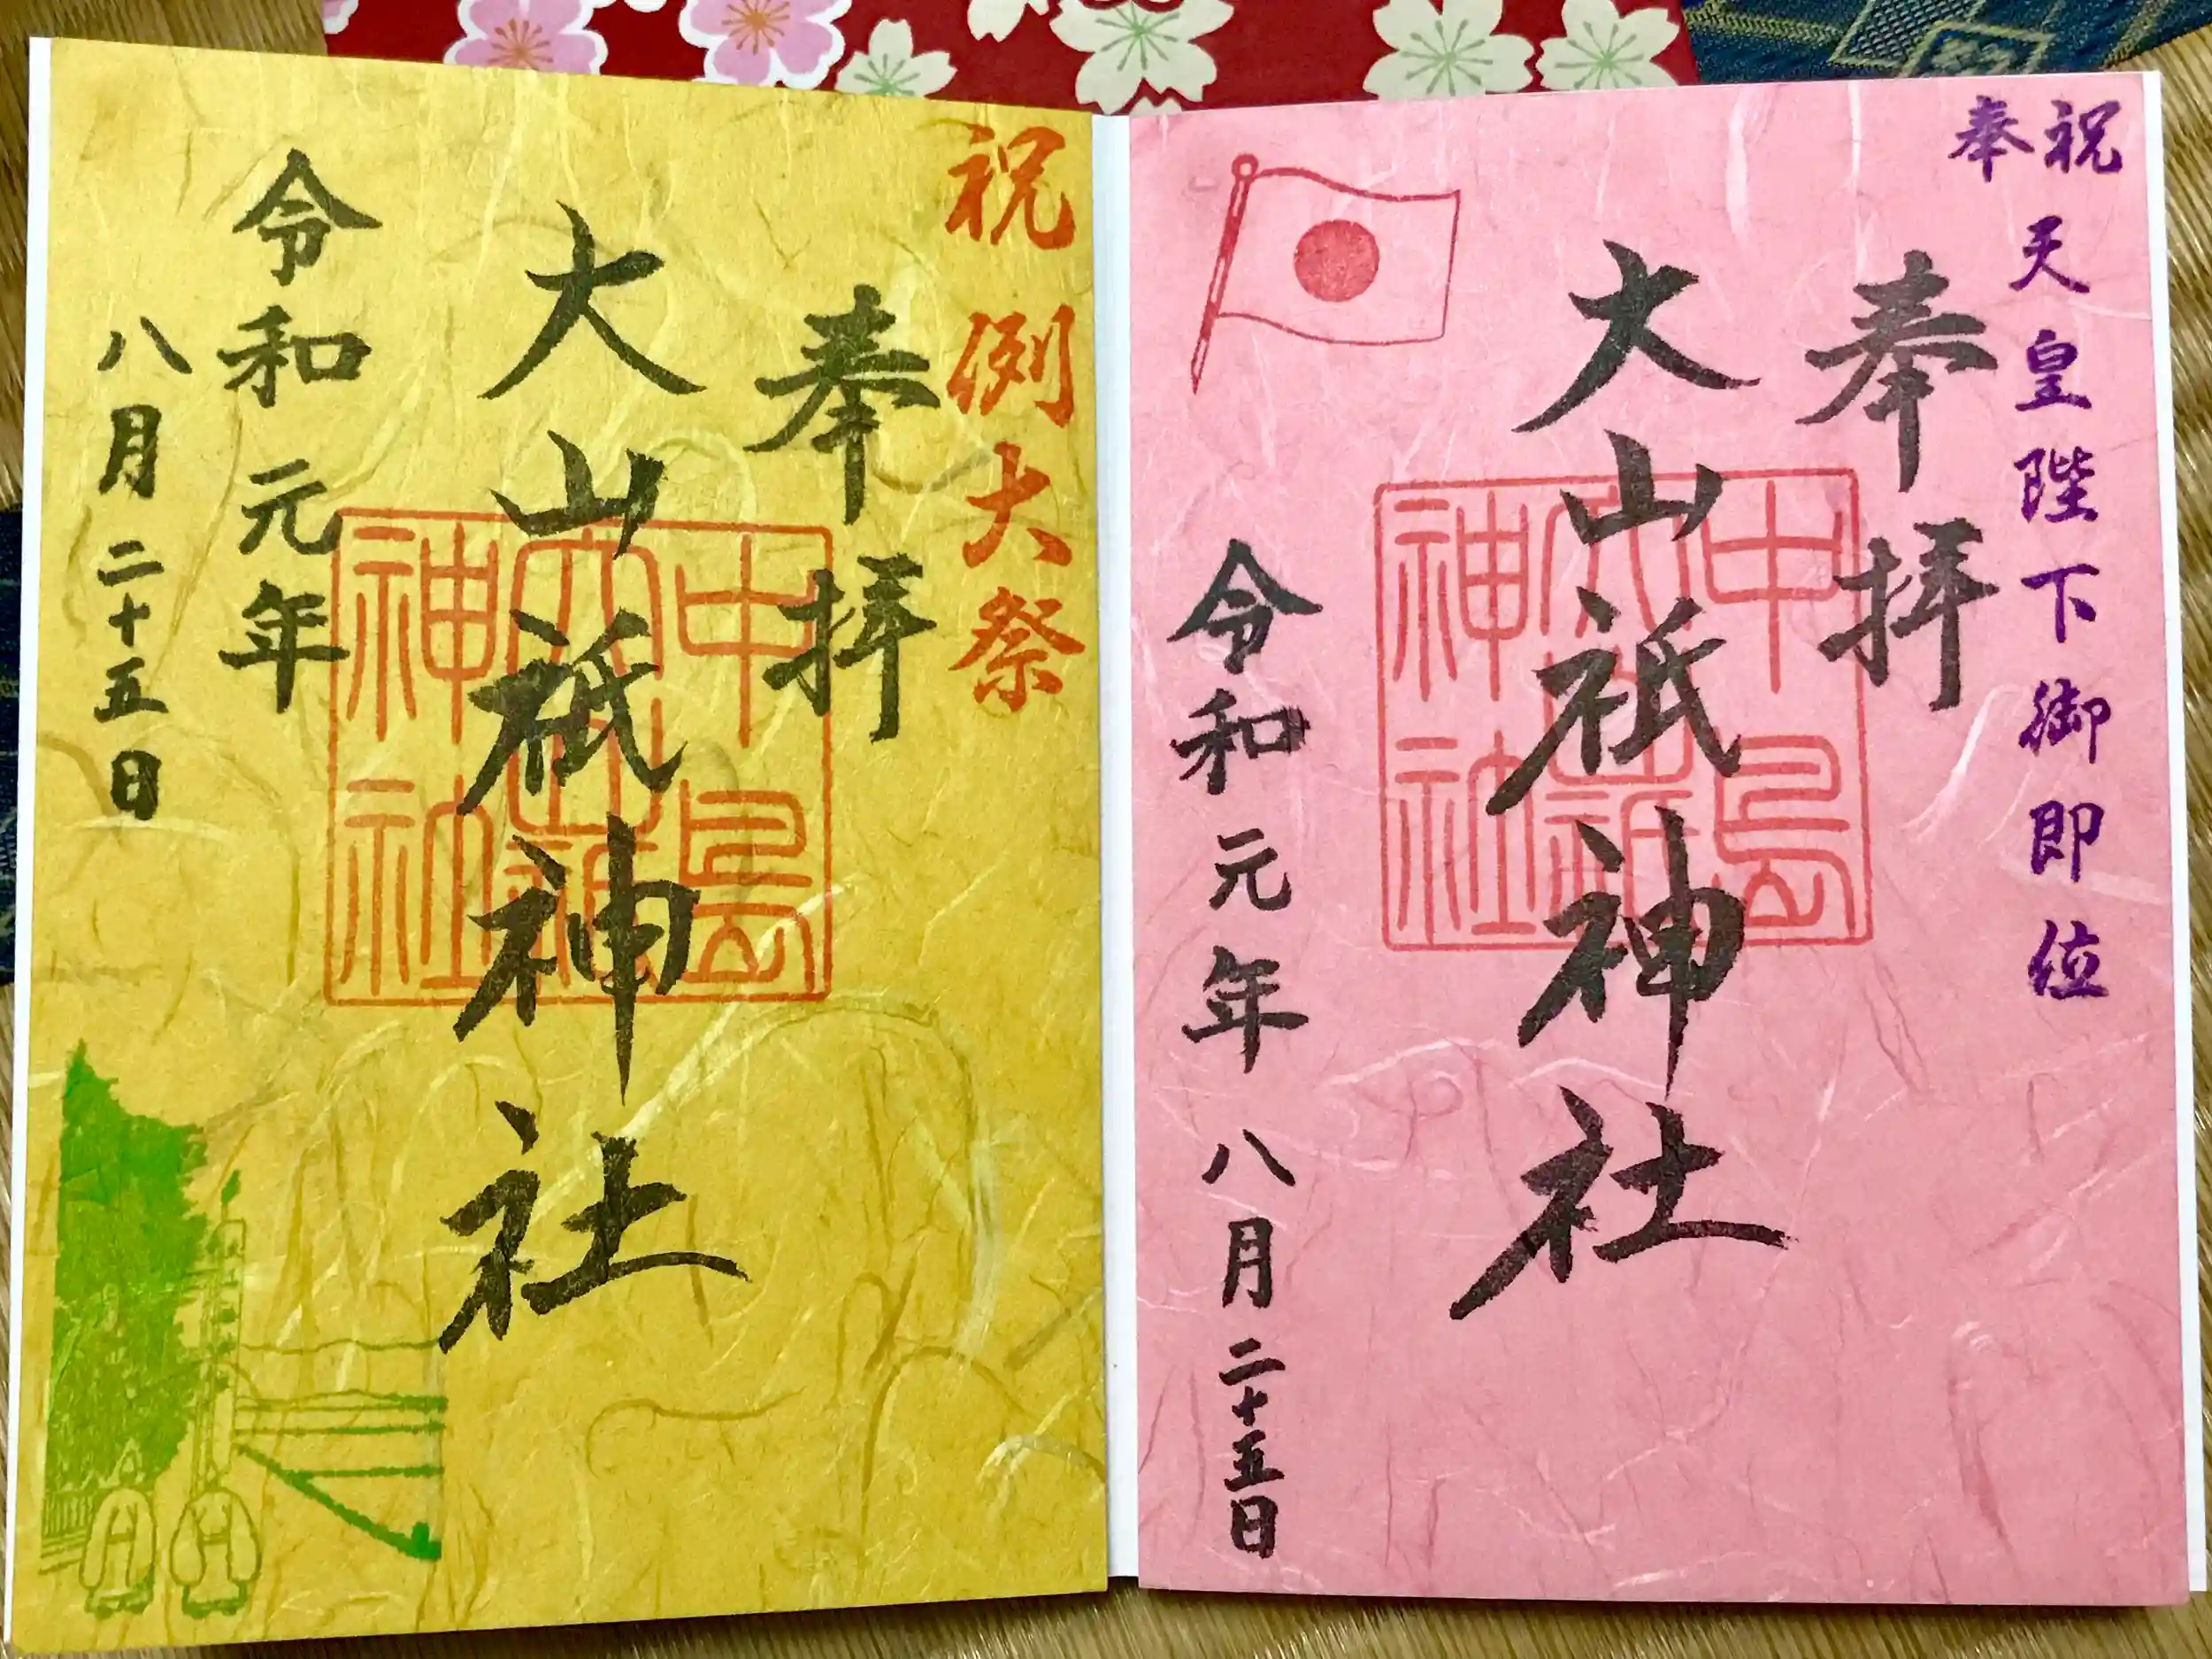 奉祝
天皇陛下御即位
奉拝
大山祇神社
中島
大山祇
神社
令和元年八月二十五日
祝 例大祭
奉拝
大山祇神社
中島
大山祇
神社
令和元年
八月二十五日